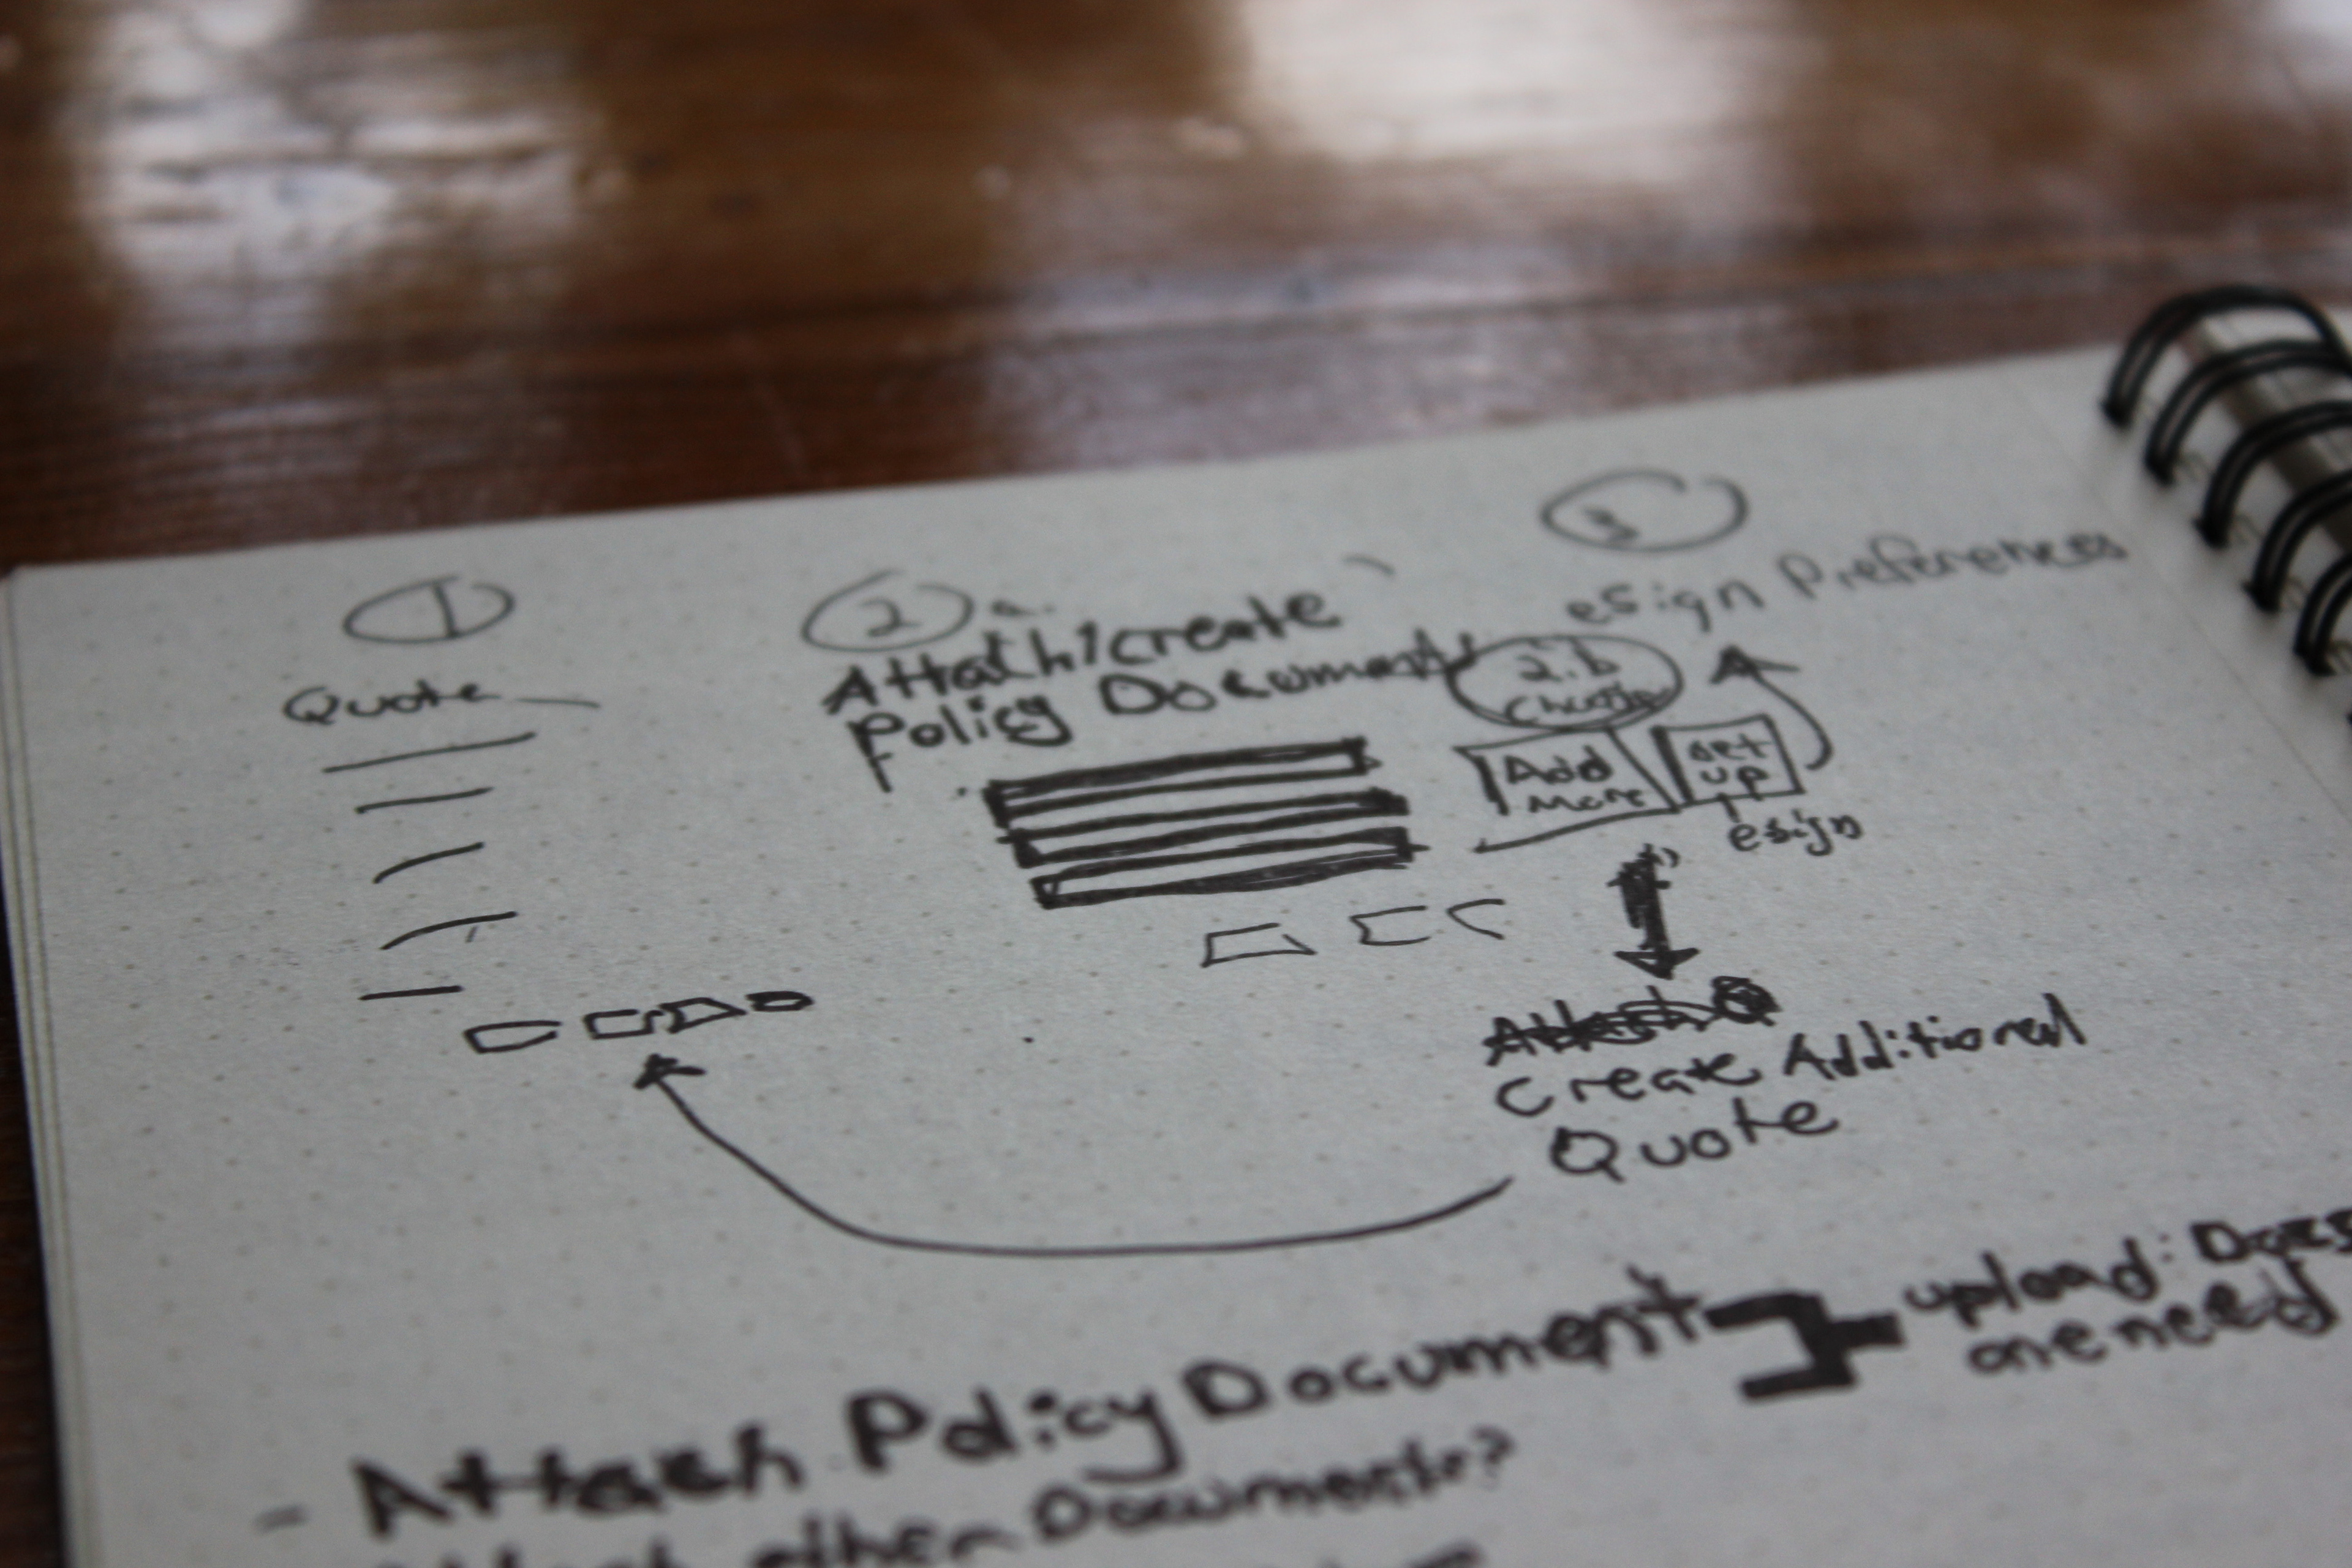 1
Quote
2 a.
Attach/create
Policy Documents
3
esign Preferences
2.b
Choose
Add
More
set
up
esign
Create Additional
Quote
- Attach Policy Document
upload: Does
one need
Attach other Documents?